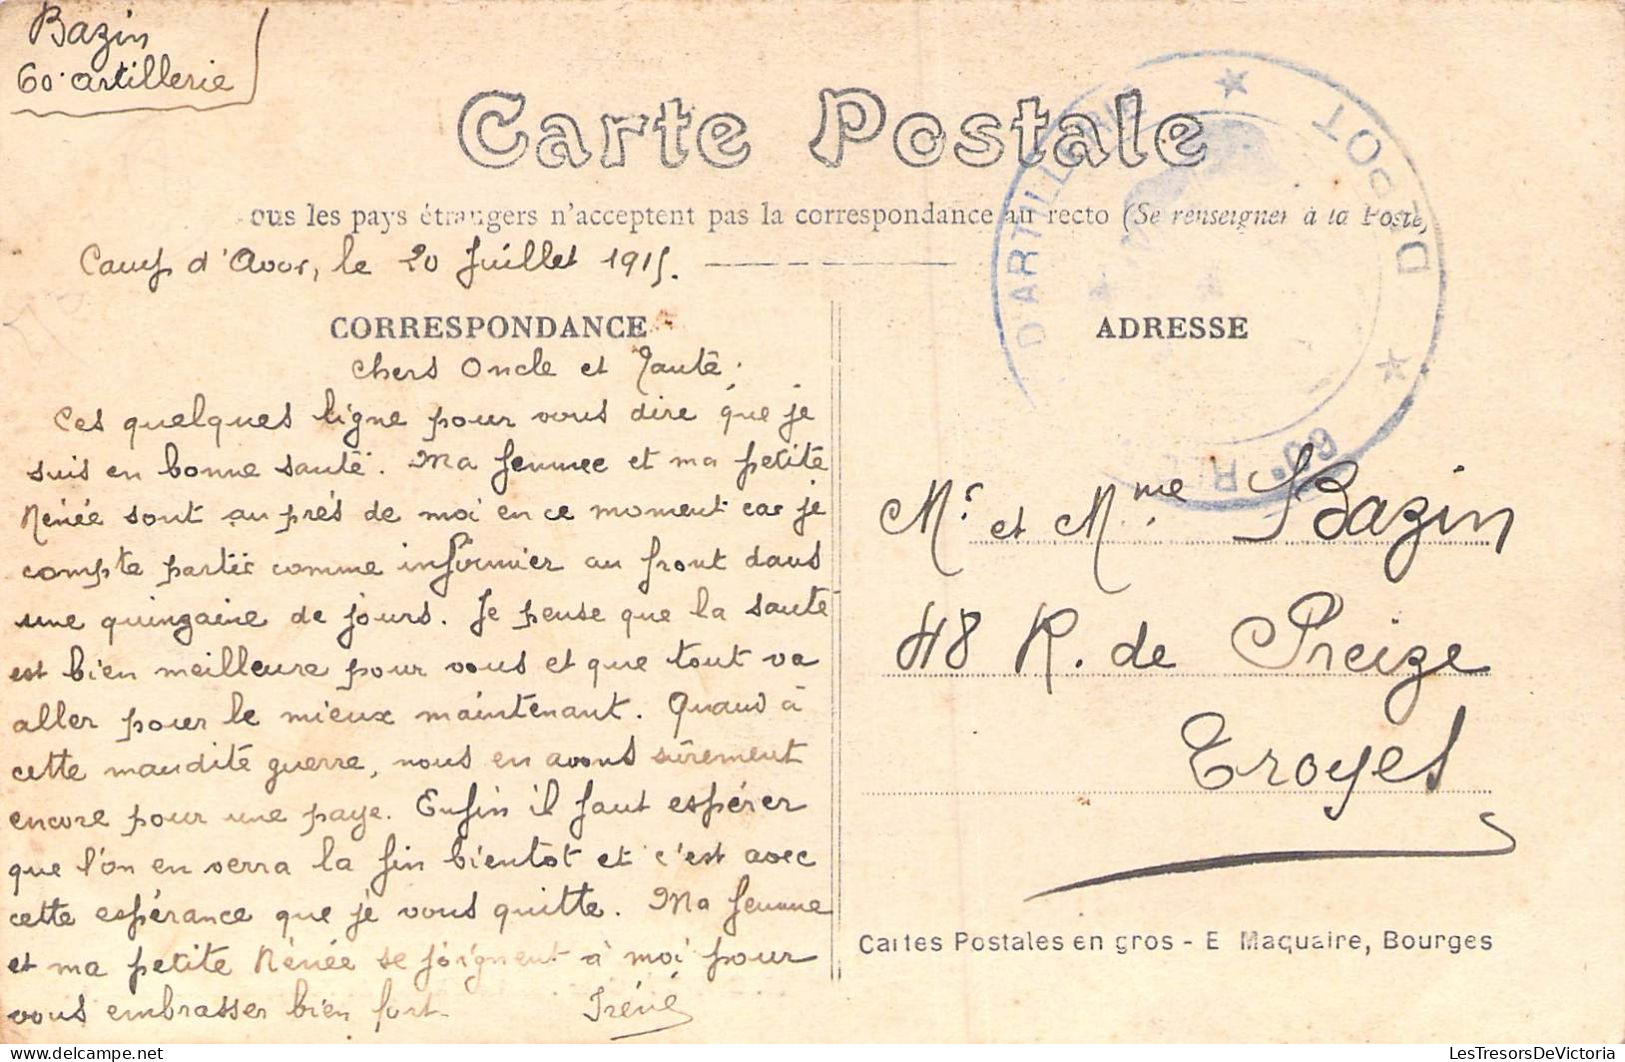 Bazin
60e artillerie
Carte Postale
ous les pays étrangers n'acceptent pas la correspondance au recto (Se renseigner à la Poste)
Camp d'Avor, le 20 Juillet 1915.
CORRESPONDANCE
Chers Oncle et Tante.
Ces quelques ligne pour vous dire que je
suis en bonne santé. Ma femme et ma petite
Renée sont au prés de moi en ce moment car je
compte partir comme infirmier au front dans
une quinzaine de jours. Je pense que la santé
est bien meilleure pour vous et que tout va
aller pour le mieux maintenant. Quand à
cette maudite guerre, nous en avons sûrement
encore pour une paye. Enfin il faut espérer
que l'on en verra la fin bientot et c'est avec
cette espérance que je vous quitte. Ma femme
et ma petite Rénée se joignent à moi pour
vous embrasser bien fort.
Iréné
ADRESSE
Mr. et Mme Bazin
48 R. de Preize
Troyes
Cartes Postales en gros - E Maquaire, Bourges
DÉPOT
60e R
D'ARTILLERIE
LesTresorsDeVictoria